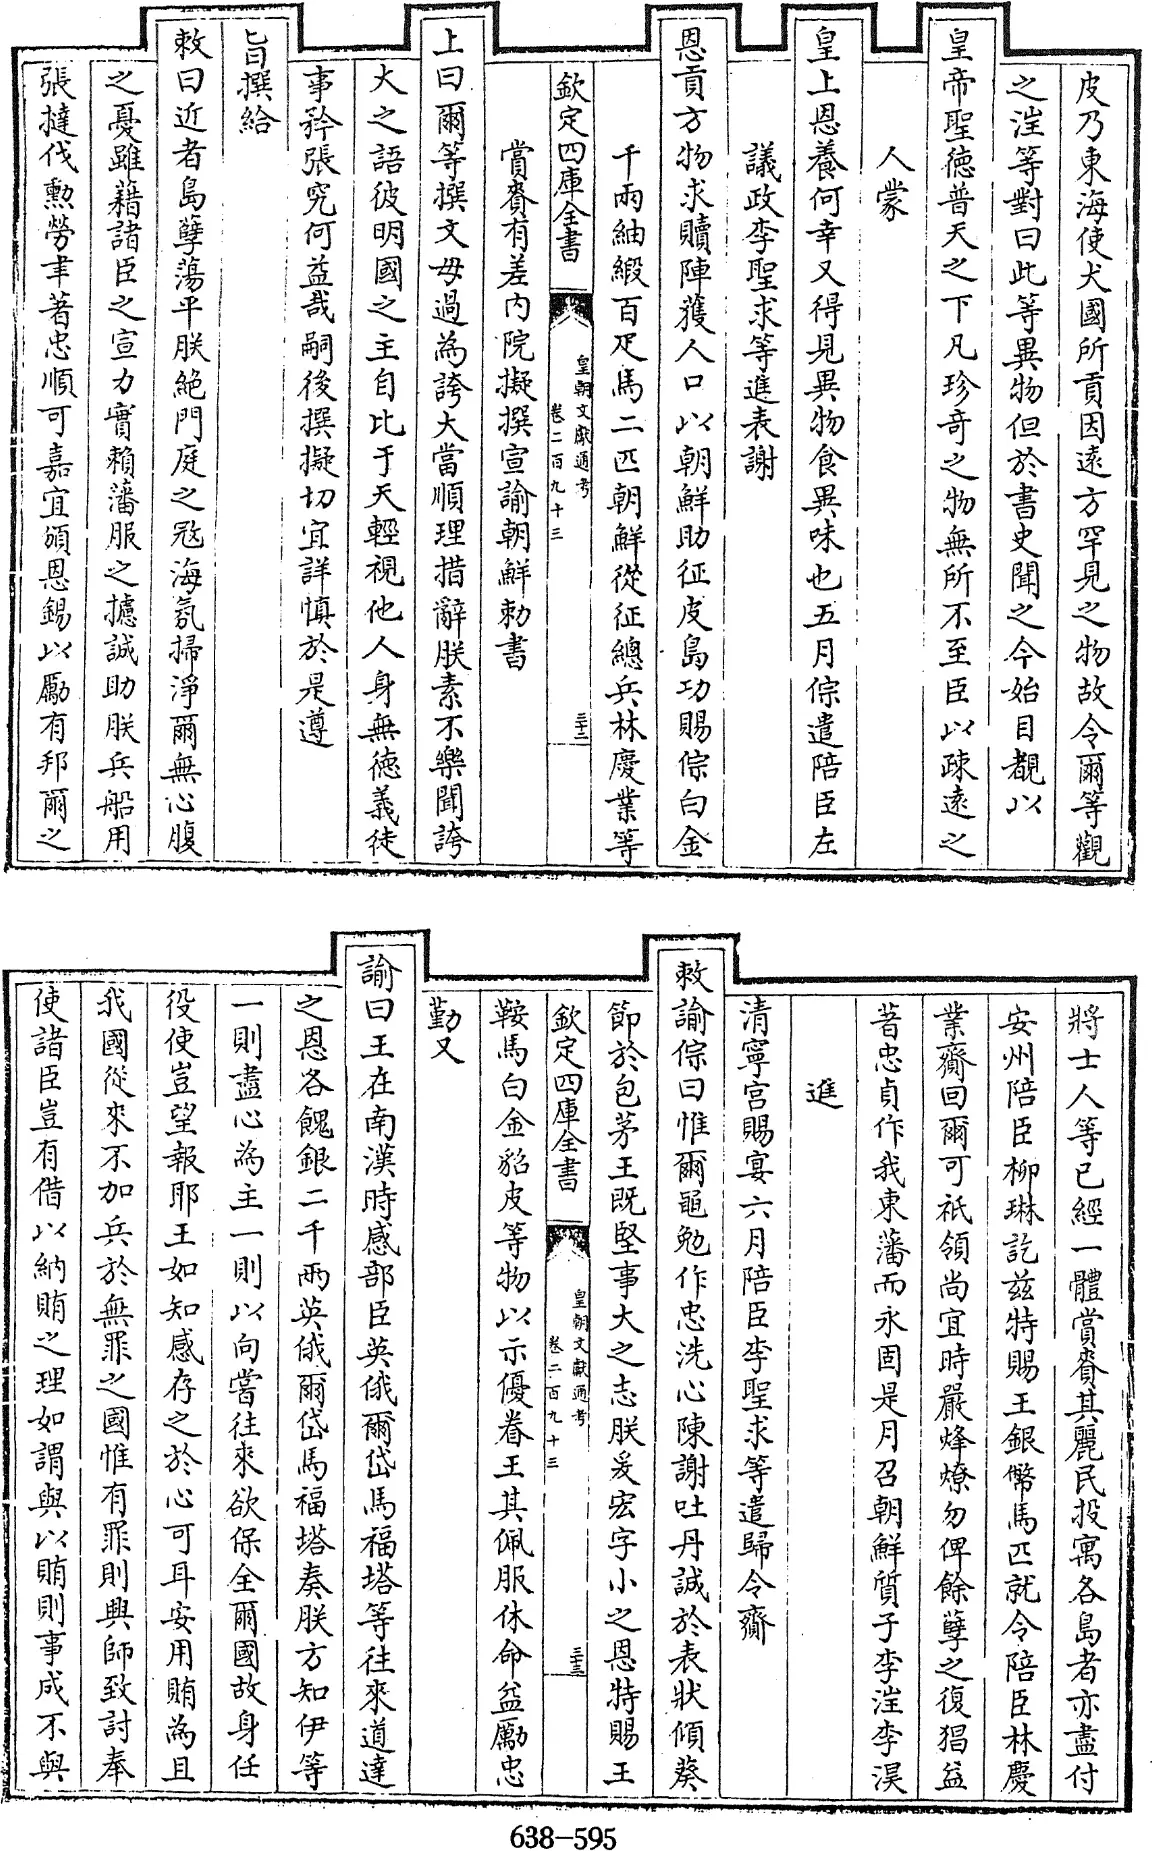 皮乃東海使犬國所貢因遠方罕見之物故令爾等觀
之𣵀等對曰此等異物但於書史聞之今始目覩以
皇帝聖徳普天之下凡珍奇之物無所不至臣以疎遠之
人蒙
皇上恩養何幸又得見異物食異味也五月倧遣陪臣左
議政李聖求等進表謝
恩貢方物求贖陣獲人口以朝鮮助征皮島功賜倧白金
千兩紬緞百疋馬二匹朝鮮從征總兵林慶業等
欽定四庫全書
皇朝文獻通考
卷二百九十三
三十二
賞賚有差内院擬撰宣諭朝鮮勅書
上曰爾等撰文毋過為誇大當順理措辭朕素不樂聞誇
大之語彼明國之主自比于天輕視他人身無徳義徒
事矜張究何益哉嗣後撰擬切宜詳慎於是遵
旨撰給
敕曰近者島孽蕩平朕絶門庭之冦海氛掃淨爾無心腹
之憂雖藉諸臣之宣力實賴藩服之攄誠助朕兵船用
張撻伐勲勞聿著忠順可嘉宜頒恩錫以勵有邦爾之
將士人等已經一體賞賚其麗民投寓各島者亦盡付
安州陪臣柳琳訖兹特賜王銀幣馬匹就令陪臣林慶
業齎回爾可祇領尚宜時嚴烽燎勿俾餘孽之復猖益
著忠貞作我東藩而永固是月召朝鮮質子李𣵀李淏
進
清寧宫賜宴六月陪臣李聖求等遣歸令齎
敕諭倧曰惟爾黽勉作忠洗心陳謝吐丹誠於表狀傾葵
節於包茅王既堅事大之志朕爰宏字小之恩特賜王
欽定四庫全書
皇朝文獻通考
卷二百九十三
三十三
鞍馬白金貂皮等物以示優眷王其佩服休命益勵忠
勤又
諭曰王在南漢時感部臣英俄爾岱馬福塔等往來道達
之恩各餽銀二千兩英俄爾岱馬福塔奏朕方知伊等
一則盡心為主一則以向嘗往來欲保全爾國故身任
役使豈望報耶王如知感存之於心可耳安用賄為且
我國從來不加兵於無罪之國惟有罪則興師致討奉
使諸臣豈有借以納賄之理如謂與以賄則事成不與
638-595